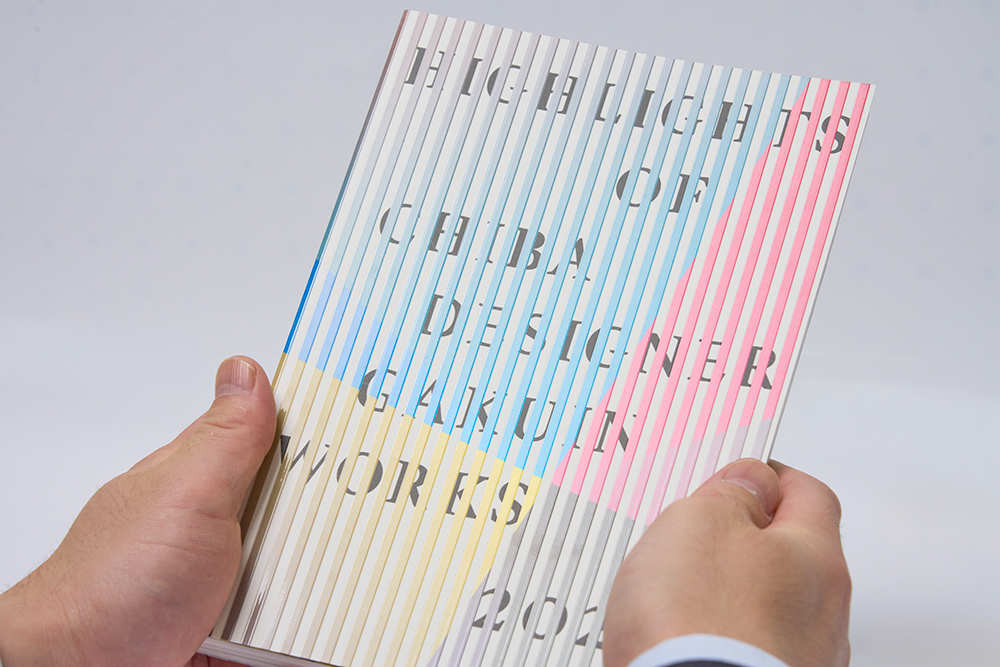 HIGHLIGHTS
OF
CHIBA
DESIGNER
GAKUIN
WORKS